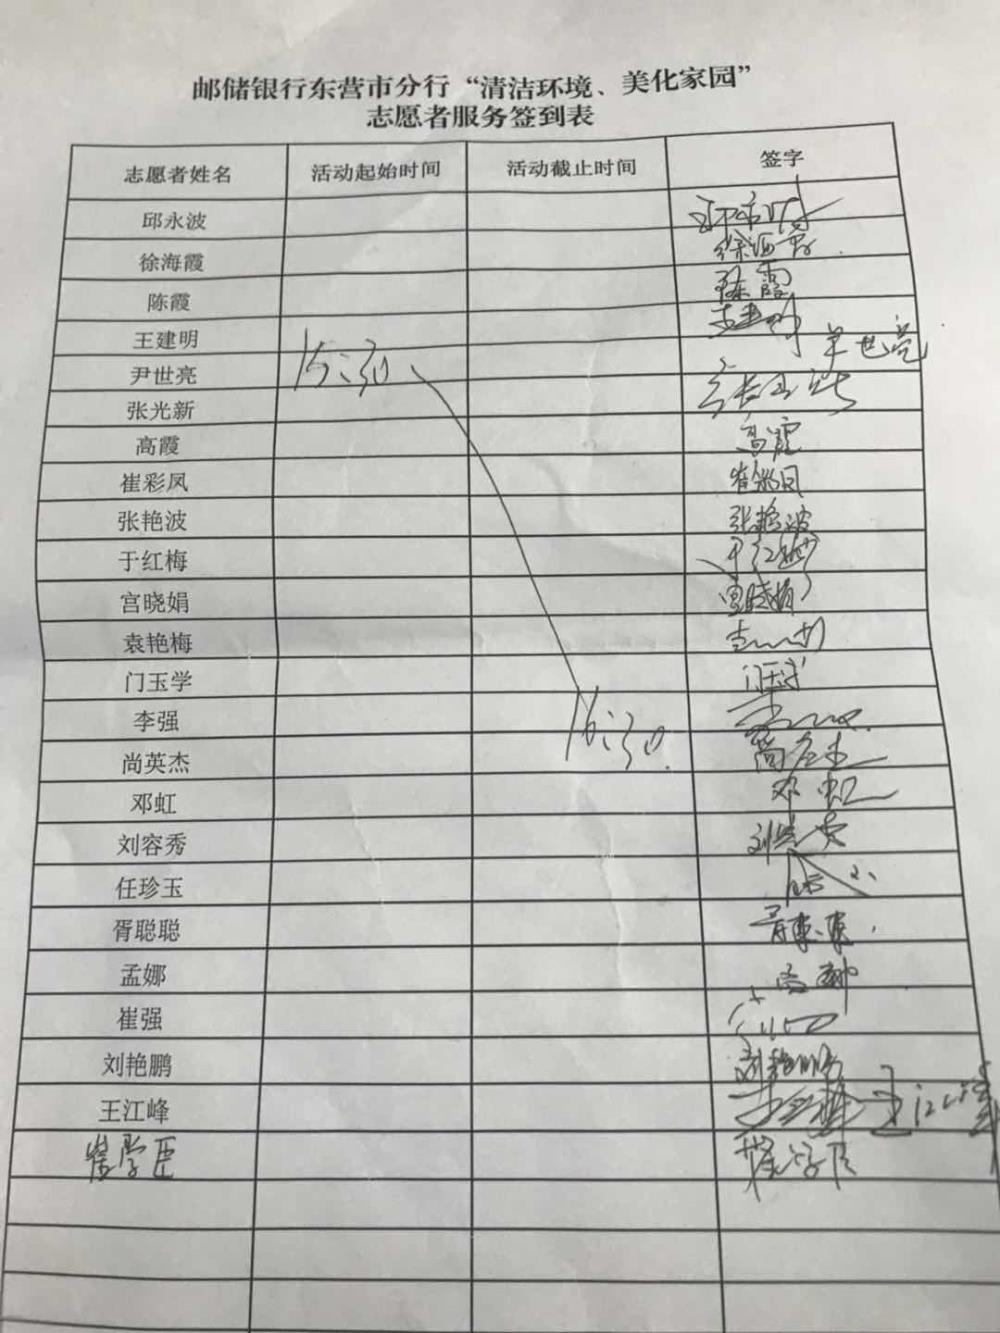 邮储银行东营市分行“清洁环境、美化家园”
志愿者服务签到表
志愿者姓名 活动起始时间 活动截止时间 签字
邱永波
徐海霞 徐海霞
陈霞 陈霞
王建明
尹世亮 15:30 尹世亮
张光新
高霞 高霞
崔彩凤 崔彩凤
张艳波 张艳波
于红梅 于红梅
宫晓娟 宫晓娟
袁艳梅
门玉学 门玉学
李强
尚英杰 16:30 尚英杰
邓虹 邓虹
刘容秀
任珍玉
胥聪聪
孟娜 孟娜
崔强
刘艳鹏 刘艳鹏
王江峰 王江峰
崔学臣 崔学臣